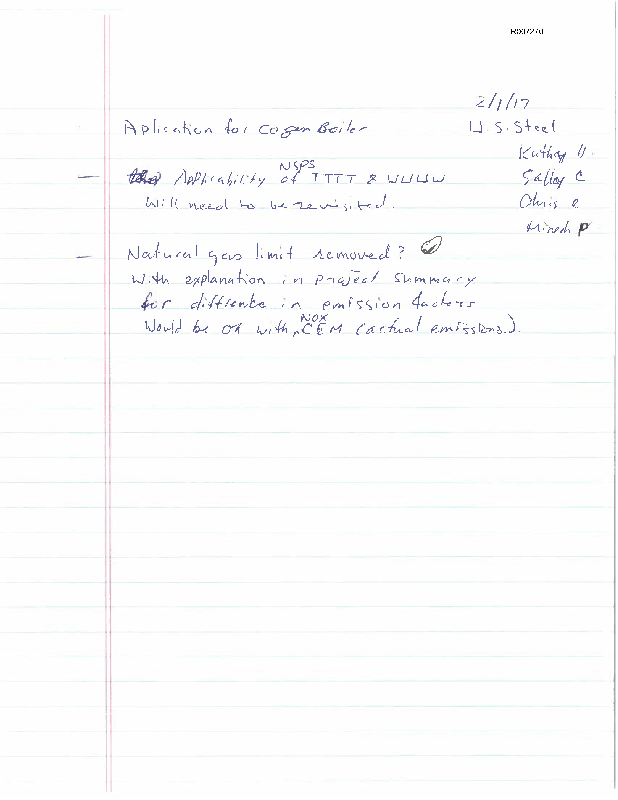 R007270
2/1/17
Aplication for Cogen Boiler U.S. Steel
Kathy H.
— Applicability of NSPS TTTT & UUUU Salley C
Will need to be revisited. Chris
P
— Natural gas limit removed?
With explanation in project summary
for diffrence in emission factors
Would be ok with NOX CEM (actual emissions.).